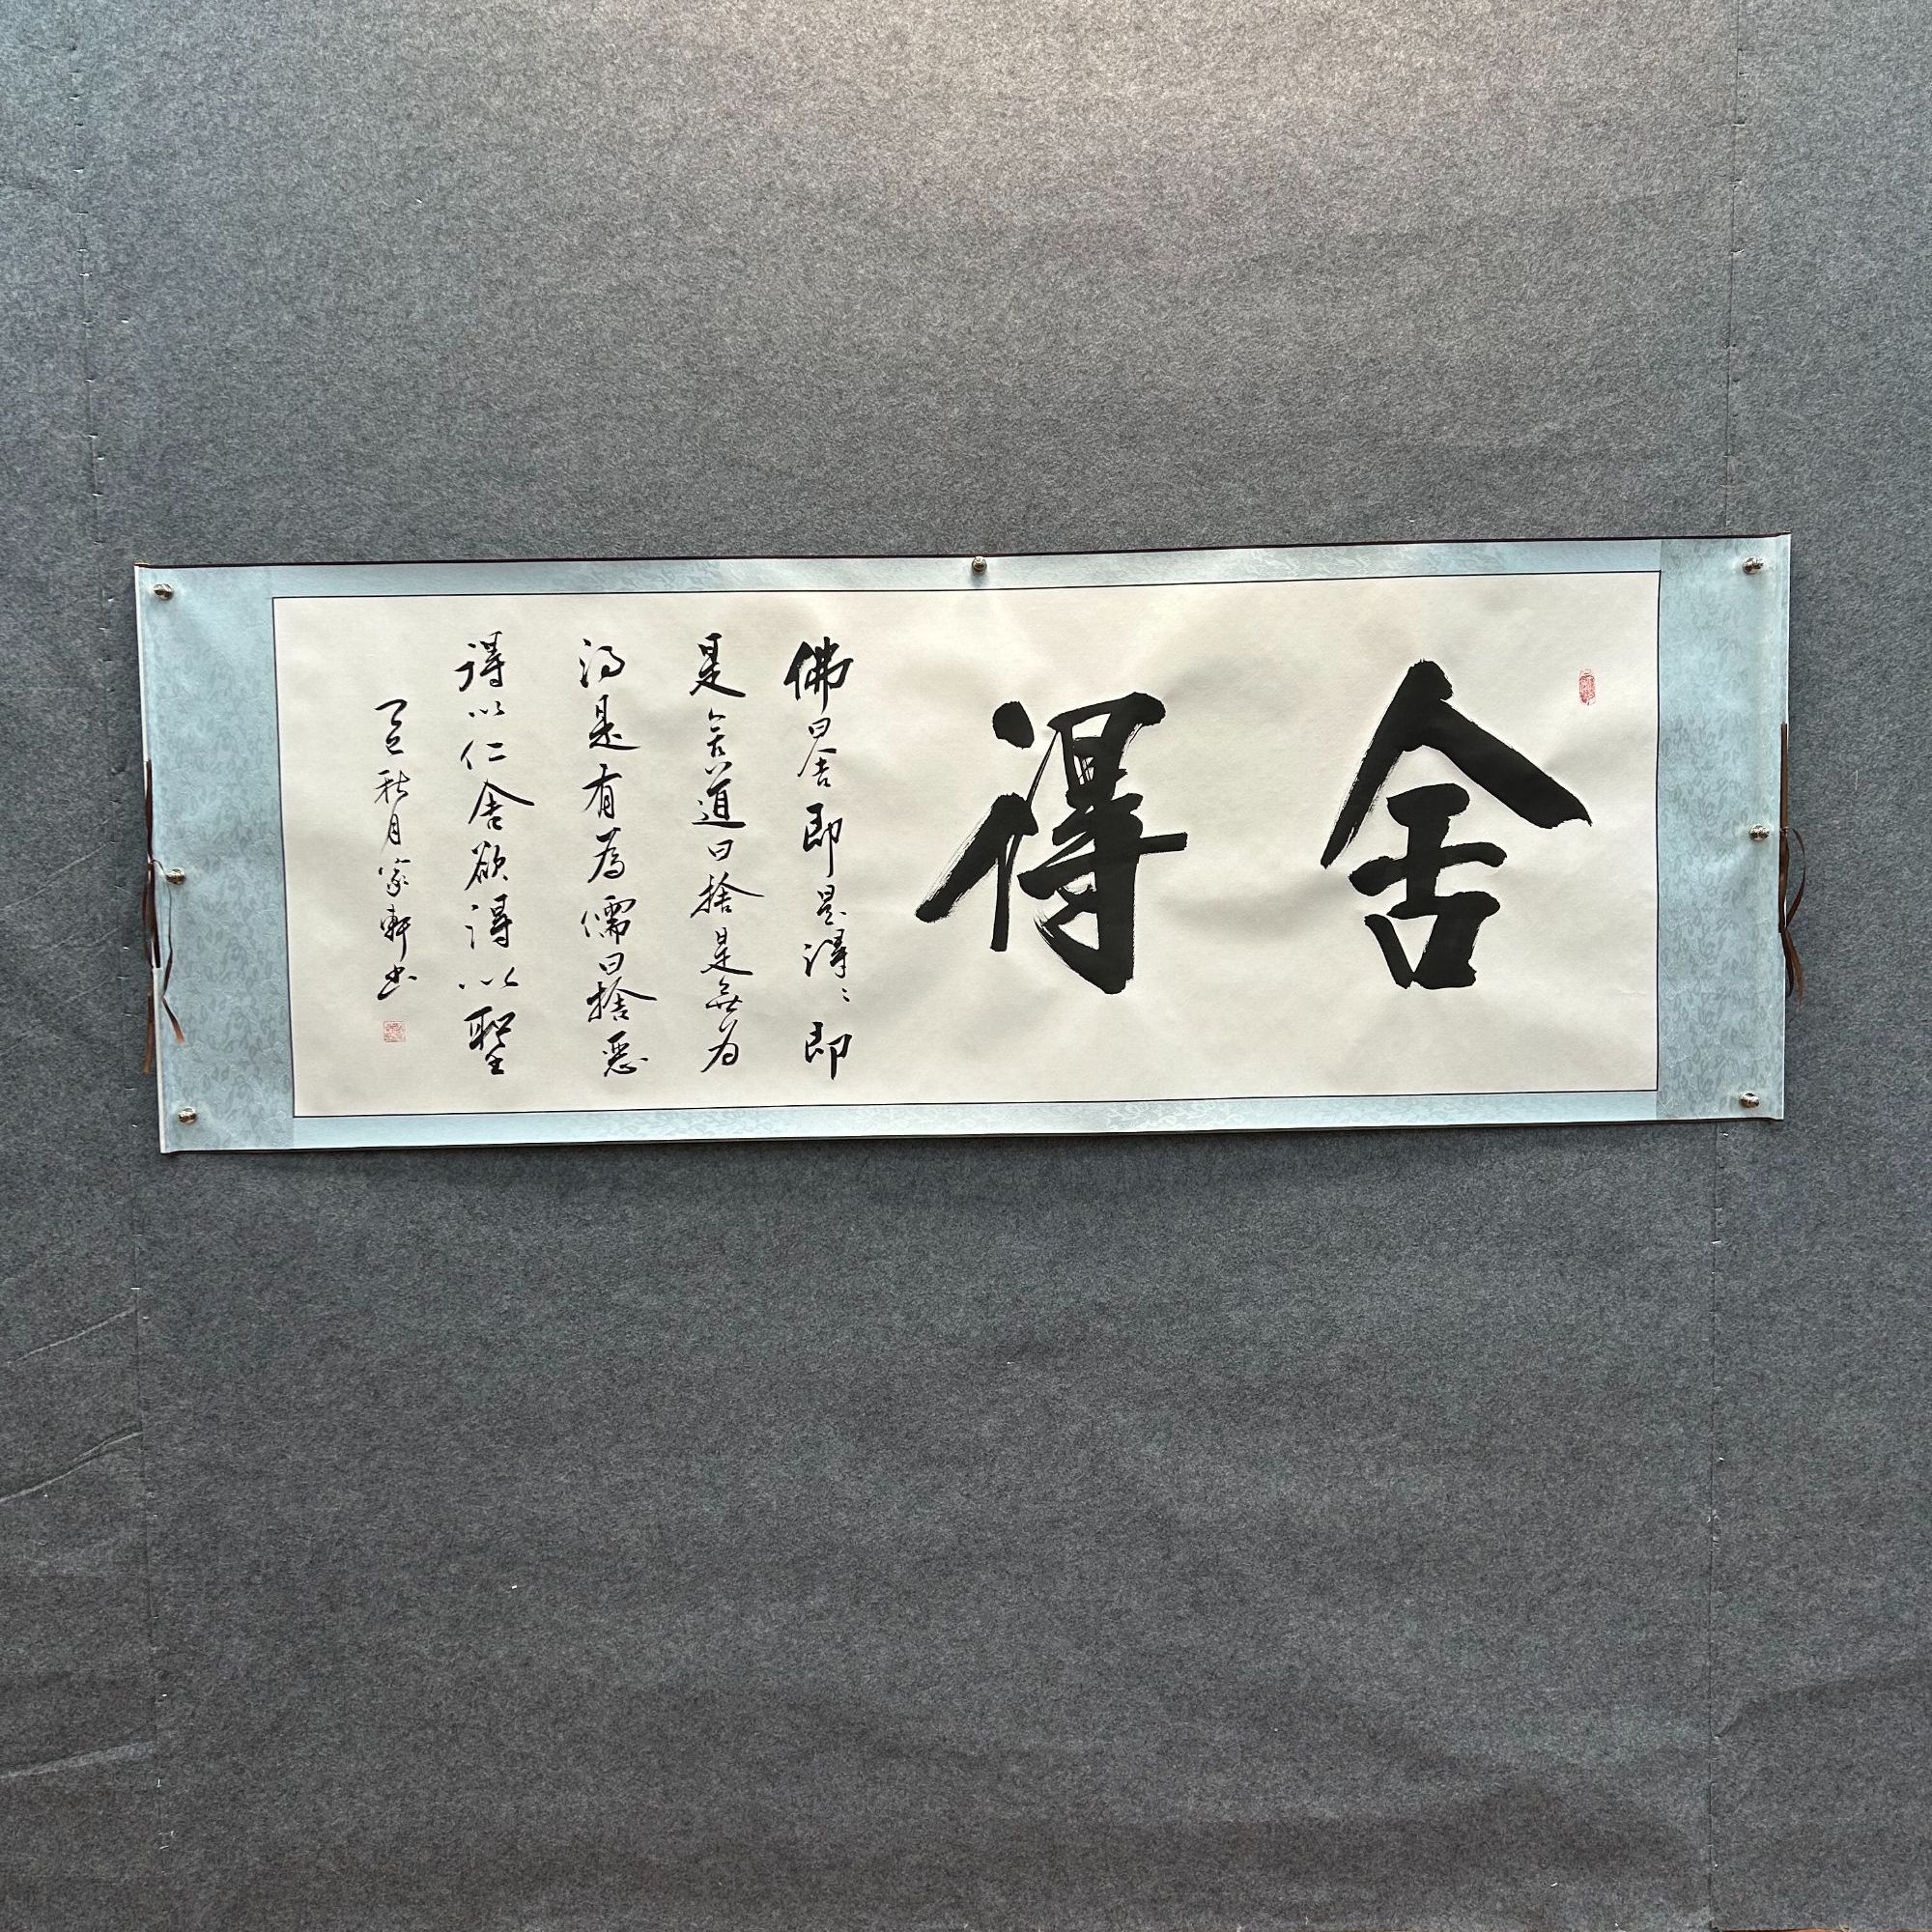 舍得
佛曰舍即是得〻即
是舍道曰捨是無为
得是有為儒曰捨惡
得以仁舍欲得以聖
乙巳秋月家軒书